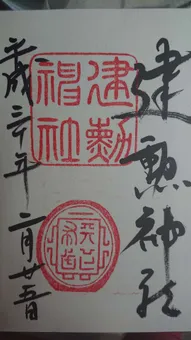 建勲神社
建勲神社
平成三十年二月廿五日